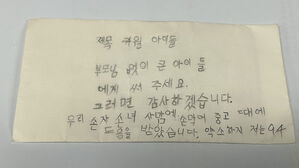 제목 귀월 아이들
부모님 없이 큰 아이들
에게 써 주세요.
그러면 감사하겠습니다.
우리 손자 소녀 사망에 중고 때에
도움을 받았습니다. 약소하지 저는 94